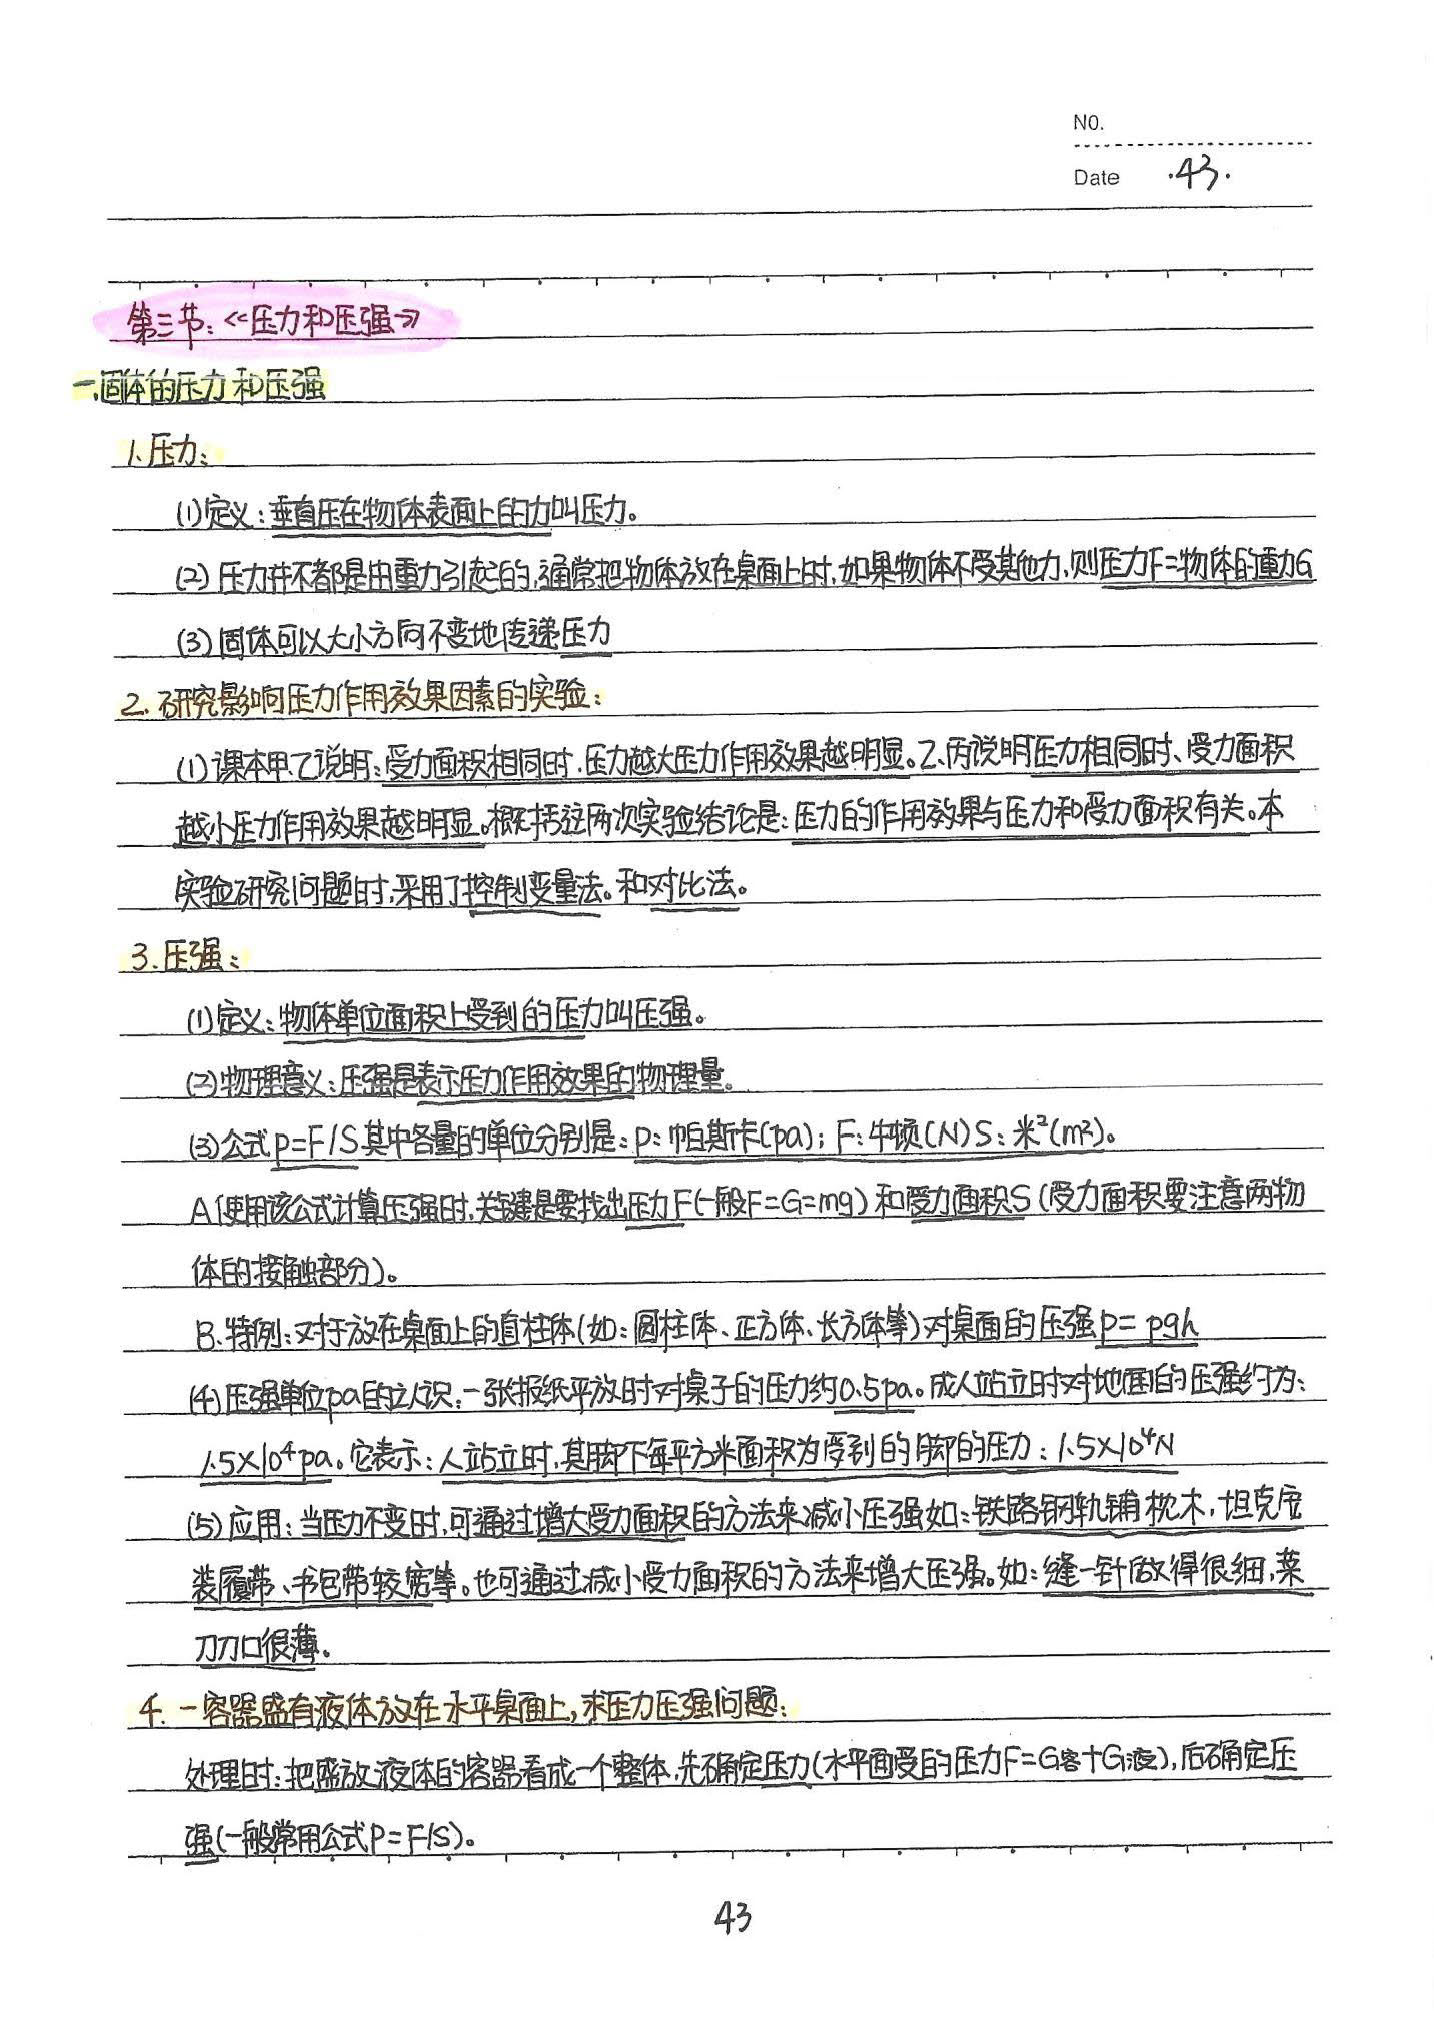 NO.
Date .43.
第三节:《压力和压强》
一.固体的压力和压强
1.压力:
(1)定义:垂直压在物体表面上的力叫压力。
(2)压力并不都是由重力引起的,通常把物体放在桌面上时,如果物体不受其他力,则压力F=物体的重力G
(3)固体可以大小方向不变地传递压力
2.研究影响压力作用效果因素的实验:
(1)课本甲、乙说明:受力面积相同时,压力越大压力作用效果越明显。乙、丙说明压力相同时、受力面积
越小压力作用效果越明显。概括这两次实验结论是:压力的作用效果与压力和受力面积有关。本
实验研究问题时,采用了控制变量法。和对比法。
3.压强:
(1)定义:物体单位面积上受到的压力叫压强。
(2)物理意义:压强是表示压力作用效果的物理量。
(3)公式p=F/S其中各量的单位分别是:p:帕斯卡(pa);F:牛顿(N)S:米²(m²)。
A使用该公式计算压强时,关键是要找出压力F(一般F=G=mg)和受力面积S(受力面积要注意两物
体的接触部分)。
B.特例:对于放在桌面上的直柱体(如:圆柱体、正方体、长方体等)对桌面的压强p=ρgh
(4)压强单位pa的认识:一张报纸平放时对桌子的压力约0.5pa。成人站立时对地面的压强约为:
1.5×10⁴pa。它表示:人站立时,其脚下每平方米面积为受到的脚的压力:1.5×10⁴N
(5)应用:当压力不变时,可通过增大受力面积的方法来减小压强如:铁路钢轨铺枕木,坦克应
装履带、书包带较宽等。也可通过减小受力面积的方法来增大压强。如:缝一针做得很细,菜
刀刀口很薄。
4.一容器盛有液体放在水平桌面上,求压力压强问题:
处理时:把盛放液体的容器看成一个整体,先确定压力(水平面受的压力F=G容+G液),后确定压
强(一般常用公式P=F/S)。
43